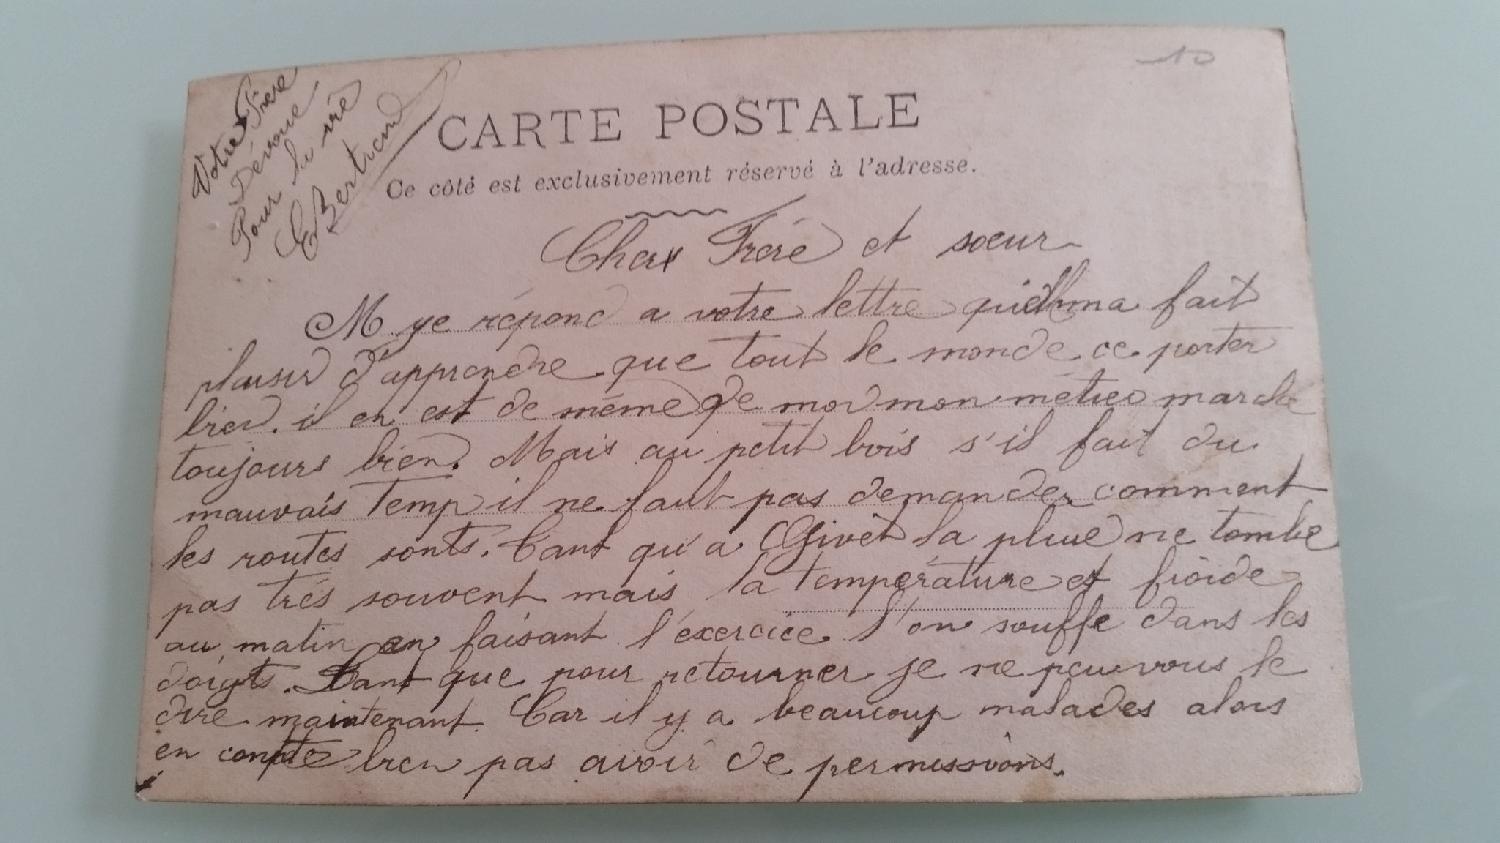 10
Votre Frere
Dévoué
Pour la vie
Bertrand
CARTE POSTALE
Ce côté est exclusivement réservé à l'adresse.
Cher Freré et sœur
M ye répond a votre lettre qui ma fait
plaisir d'apprendre que tout le monde ce porter
bien. il en est de même de moi mon métier marche
toujours bien. Mais au petit bois s'il fait du
mauvais temp il ne faut pas demander comment
les routes sonts. Tant qu'a Givet la pluie ne tombe
pas trés souvent mais la température et froide
au matin en faisant l'exercice l'on souffle dans les
doigts. Tant que pour retourner je ne peu vous le
dire maintenant. Car il y a beaucoup malades alors
en compte bien pas avoir de permissions.